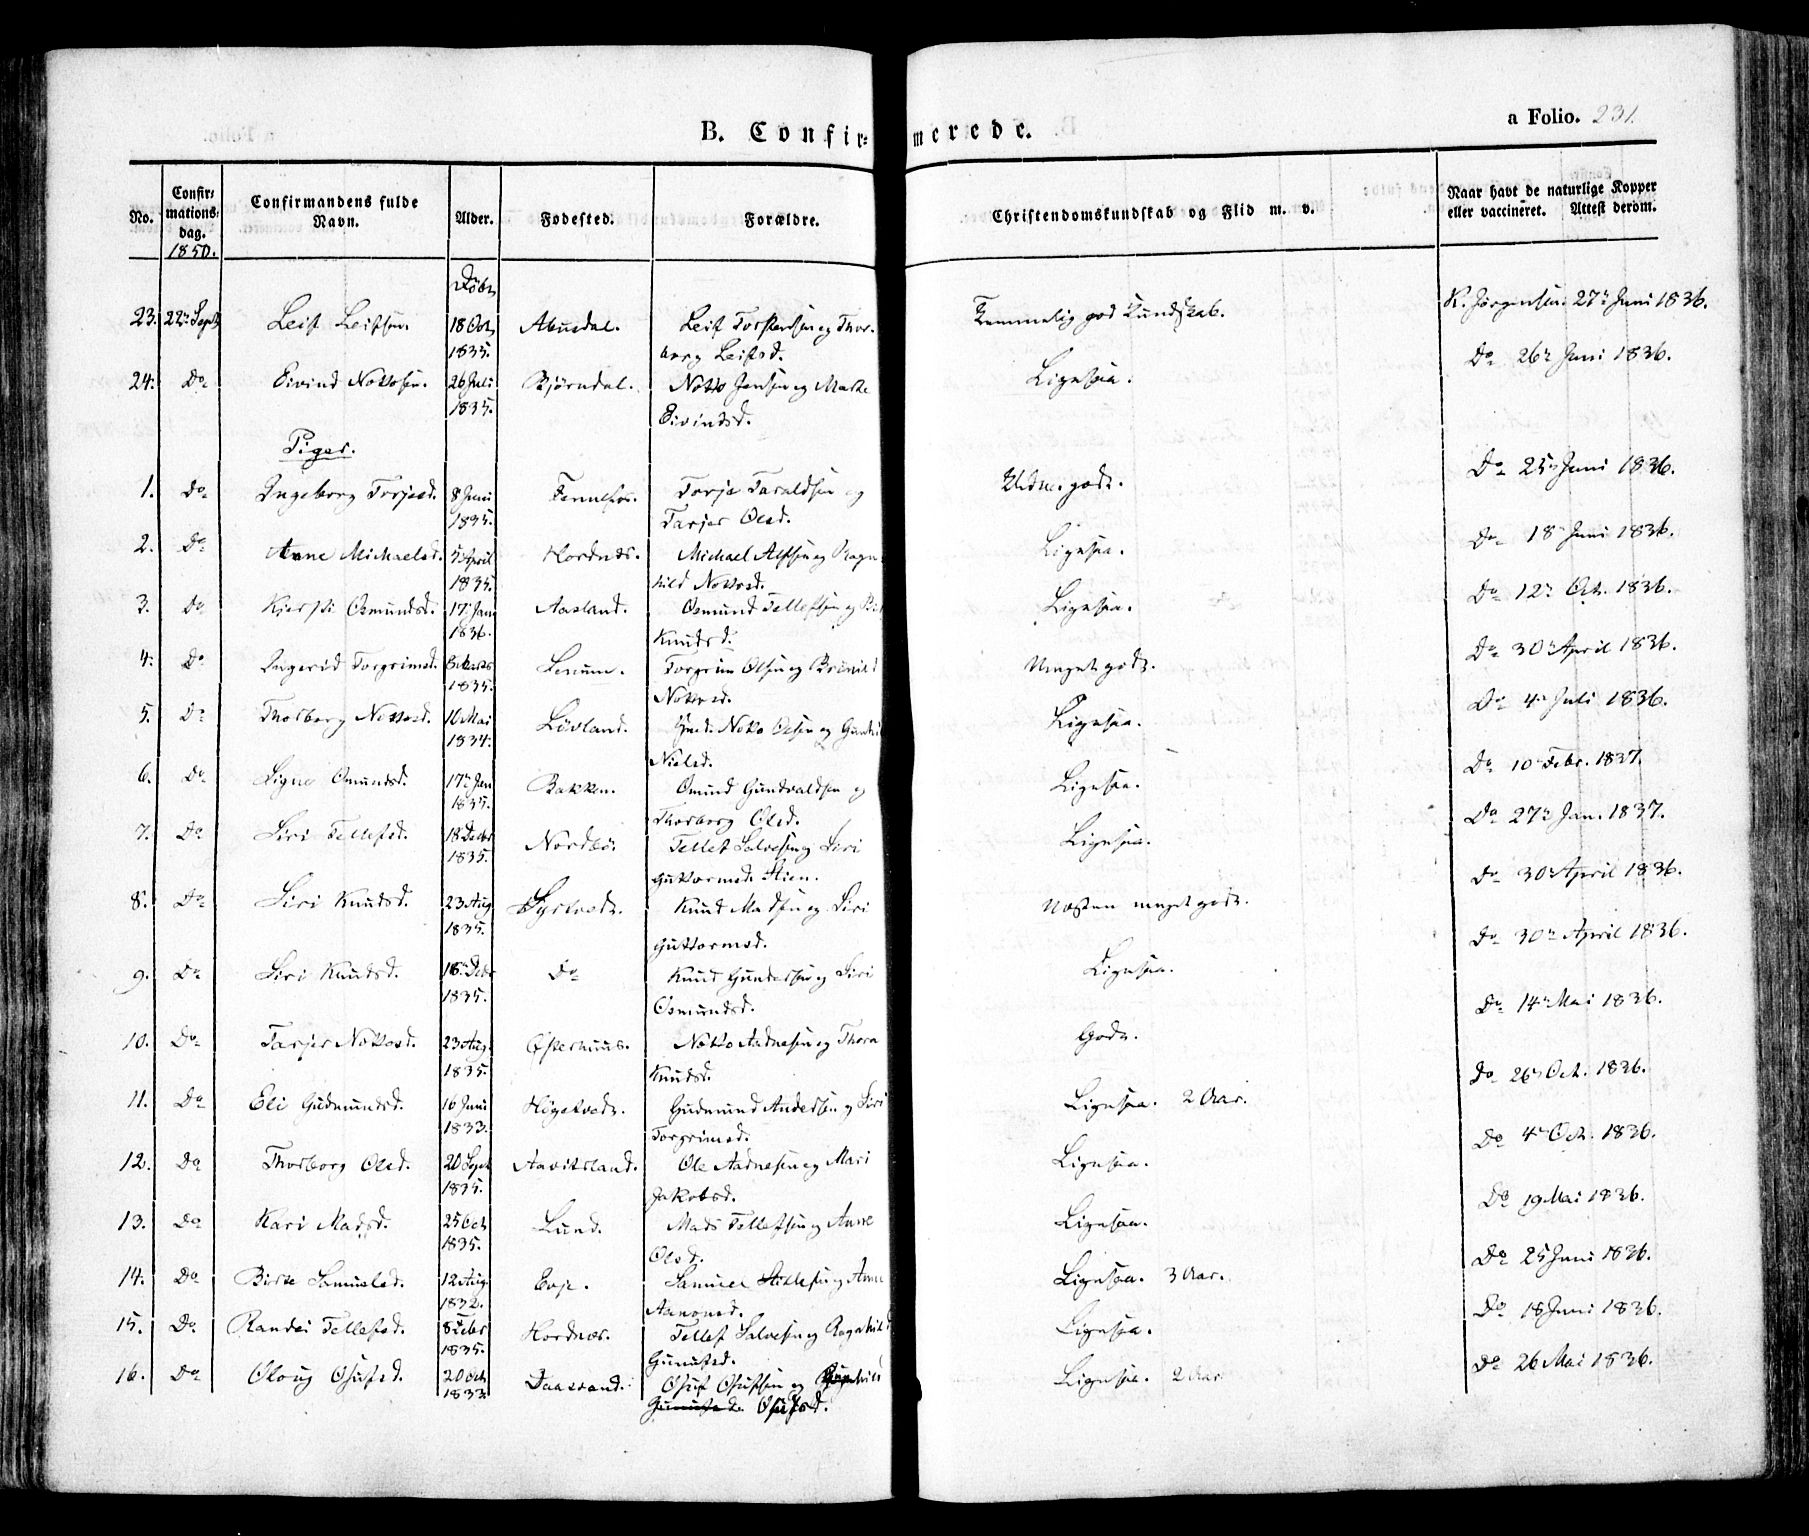 B. Confirmerede.
a Folio. 231.
No. | Confirmationsdag. 1850. | Confirmandens fulde Navn. | Alder. | Fødested. | Forældre. | Christendomskundskab og Flid m. v. | Naar havt de naturlige Kopper eller vaccineret. Attest derom.
Døbt
23. 22n Sept Leif Leifsen. 18 Oct 1835. Abusdal. Leif Torkersen og Thorborg Leifsd. Temmelig god Kundskab. K. Jørgensen. 27n Juni 1836.
24. Do Eivind Nottosen. 26 Juli 1835. Bjørndal. Notto Jensen og Marte Eivindsd. Ligesaa. Do 26n Juni 1836.
Piger.
1. Do Ingeborg Torjesd. 8 Juni 1835. Fennefos. Torje Taraldsen og Tarjer Olsd. godt. Do 25n Juni 1836.
2. Do Anne Michaelsd. 5 April 1835. Hordnes. Michael Alfsen og Ragnhild Nottosd. Ligesaa. Do 18n Juni 1836.
3. Do Kjersti Osmundsd. 17n Jan 1836. Aasland. Osmund Tellefsen og Knudsd. Ligesaa. Do 12n Oct. 1836.
4. Do Ingerid Torgrimsd. 1835. Torgrim Olsen og Nottosd. Meget godt. Do 30n April 1836.
5. Do Thorborg Nottosd. 10 Mai 1834. Løvland. Notto Olsen og Gunhild Nielsd. Ligesaa. Do 4n Juli 1836.
6. Do Signe Omundsd. 17n Jan 1835. Bakken. Omund Gundvaldsen og Thorborg Olsd. Ligesaa. Do 10n Febr. 1837.
7. Do Siri Tellefsd. 18 Decbr 1835. Nordbø. Tellef Salvesen og Siri Guttormsd. Stien. Ligesaa. Do 27n Jan. 1837.
8. Do Siri Knudsd. 23 Aug 1835. Syrtvedt. Knud Madsen og Siri Guttormsd. Næsten meget godt. Do 30n April 1836.
9. Do Siri Knudsd. 1835. Do Knud Gundersen og Siri Osmundsd. Ligesaa. Do 30n April 1836.
10. Do Tarjer Nottosd. 23 Aug. 1835. Østerhuus. Notto Aadnesen og Thora Knudsd. Godt. Do 14n Mai 1836.
11. Do Eli Gudmundsd. 16 Juni 1833. Høgetvedt. Gudmund Andersen og Siri Torgrimsd. Ligesaa. 2 Aar. Do 26n Oct. 1836.
12. Do Thorborg Olsd. 20 Sept 1835. Aavitsland. Ole Aadnesen og Mari Jakobsd. Ligesaa. Do 4n Oct. 1836.
13. Do Kari Madsd. 25 Oct 1835. Lund. Mads Tellefsen og Anne Olsd. Ligesaa. Do 19 Mai 1836.
14. Do Birte Samuelsd. 12 Aug. 1832. Evje. Samuel og Anne Aanonsd. Ligesaa. 3 Aar. Do 25 Juni 1836.
15. Do Randei Tellefsd. 1835. Hordnæs. Tellef Salvesen og Ragnhild Gunufsd. Ligesaa. Do 18 Juni 1836.
16. Do Oloug Osufsd. 20 Oct 1833 Daasvand. Osuf Osufsen og Osufsd. Ligesaa. 2 Aar Do 26 Mai 1836.